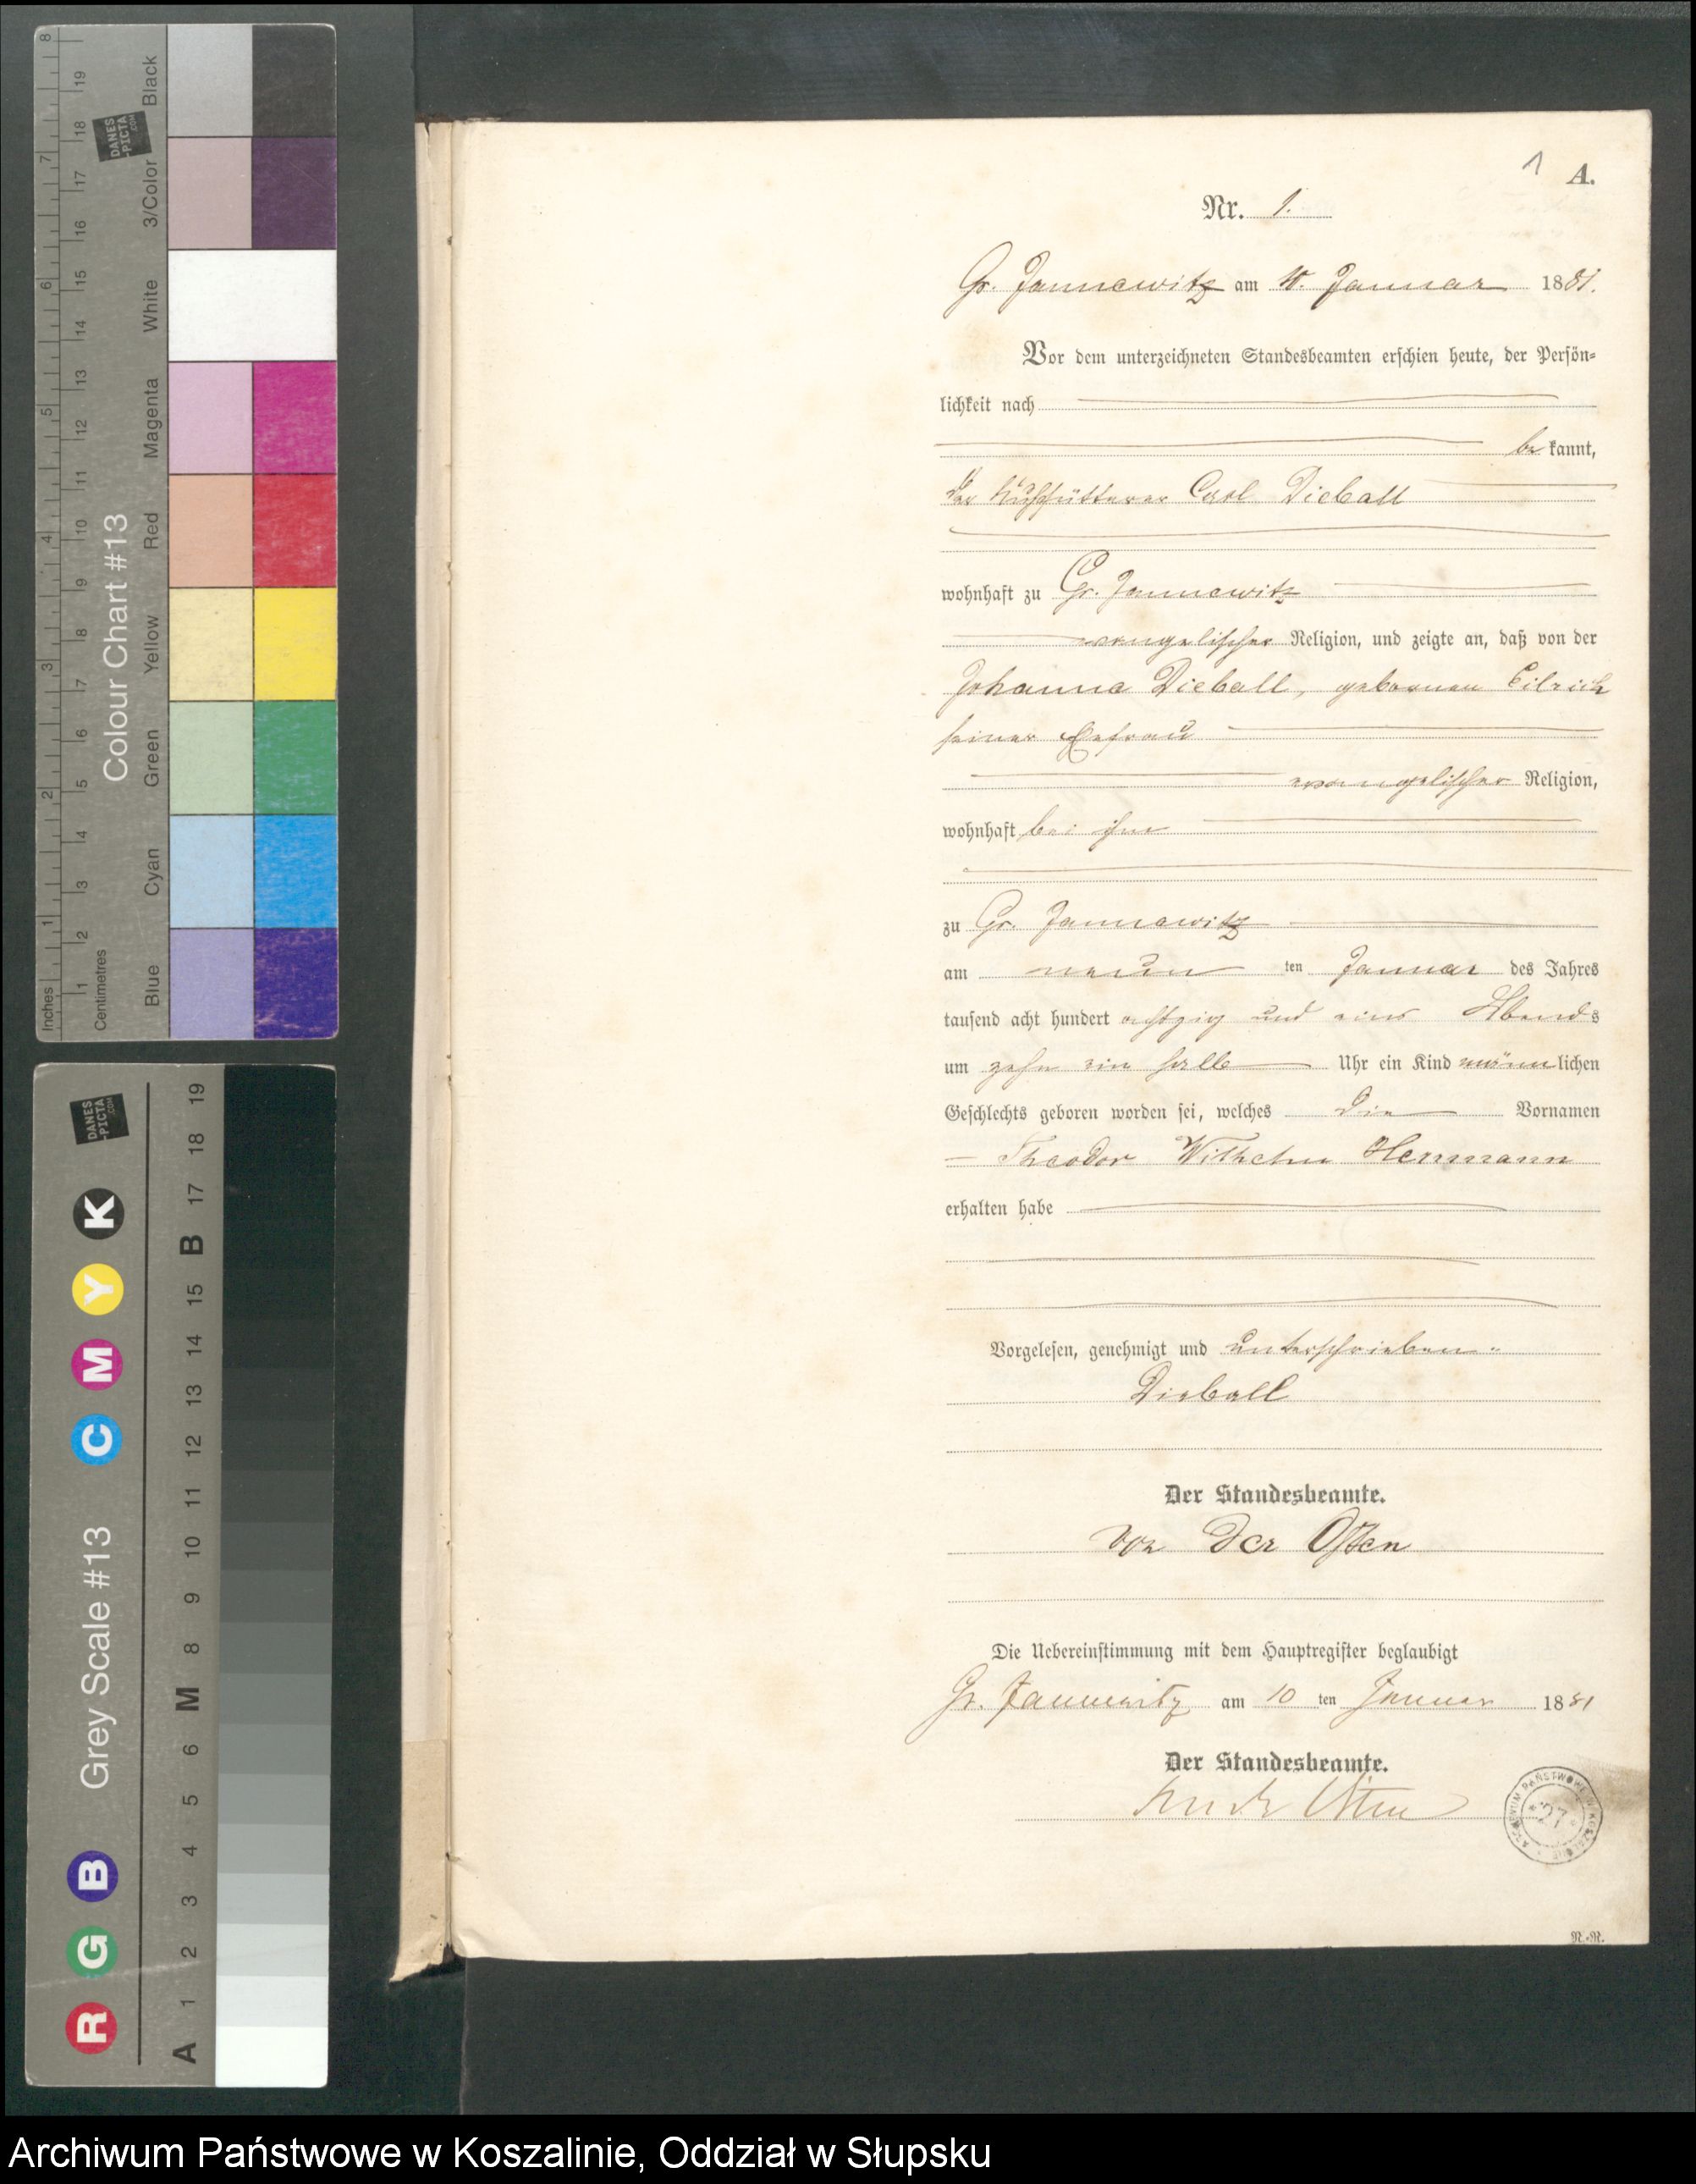 8 19 Black
DANES
-PICTA
.COM
18
7 17 3/Color
16
6 15 White
14
13 Magenta
5 12
11
4 10 Red
Colour Chart #13
9
8 Yellow
3 7
6 Green
2 5
4 Cyan
3
1 2
Inches 1 Centimetres Blue
DANES
-PICTA
.COM
19
18
K 17
B
Y 15
14
M 13
C 12
11
Grey Scale #13
10
9
8
M
6
5
B 4
3
G 2
R 1
A
1 A.
Nr. 1.
Gr. Jannewitz am 10. Januar 1881.
Vor dem unterzeichneten Standesbeamten erschien heute, der Persön-
lichkeit nach
be kannt,
der Kuhfütterer Carl Dieball
wohnhaft zu Gr. Jannewitz
evangelischer Religion, und zeigte an, daß von der
Johanna Dieball, geborenen
seiner Ehefrau
evangelischer Religion,
wohnhaft bei ihm
zu Gr. Jannewitz
am neun ten Januar des Jahres
tausend acht hundert achtzig und eins Abends
um zehn ein halb Uhr ein Kind männlichen
Geschlechts geboren worden sei, welches die Vornamen
Theodor Wilhelm Hermann
erhalten habe
Vorgelesen, genehmigt und unterschrieben.
Dieball
Der Standesbeamte.
von der Osten
Die Uebereinstimmung mit dem Hauptregister beglaubigt
Gr. Jannewitz am 10 ten Januar 1881
Der Standesbeamte.
von der Osten
ARCHIWUM PAŃSTWOWE W KOSZALINIE
27
N.-R.
Archiwum Państwowe w Koszalinie, Oddział w Słupsku